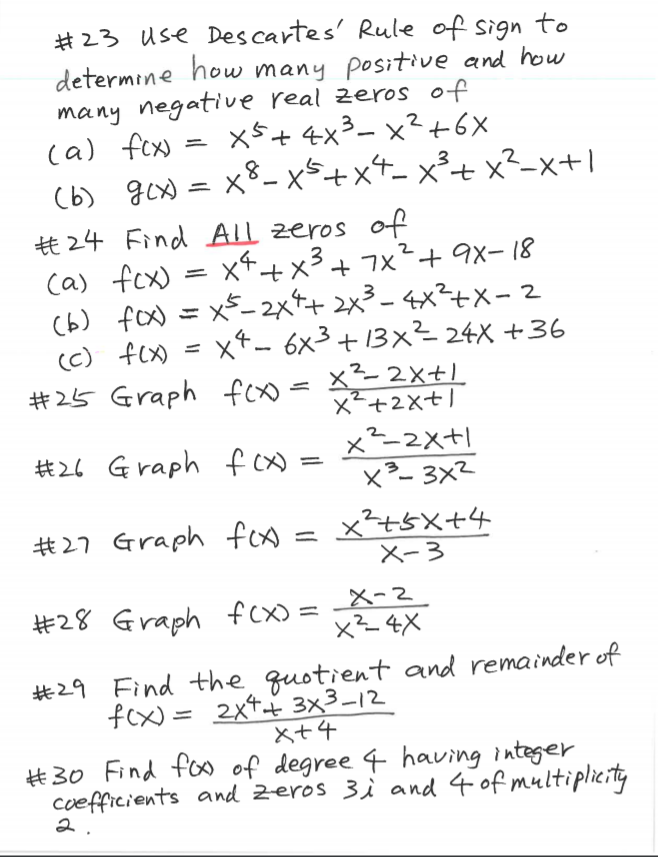 #23 Use Descartes' Rule of sign to
determine how many positive and how
many negative real zeros of
(a) f(x) = x⁵ + 4x³ - x² + 6x
(b) g(x) = x⁸ - x⁵ + x⁴ - x³ + x² - x + 1
#24 Find All zeros of
(a) f(x) = x⁴ + x³ + 7x² + 9x - 18
(b) f(x) = x⁵ - 2x⁴ + 2x³ - 4x² + x - 2
(c) f(x) = x⁴ - 6x³ + 13x² - 24x + 36
#25 Graph f(x) = (x² - 2x + 1)/(x² + 2x + 1)
#26 Graph f(x) = (x² - 2x + 1)/(x³ - 3x²)
#27 Graph f(x) = (x² + 5x + 4)/(x - 3)
#28 Graph f(x) = (x - 2)/(x² - 4x)
#29 Find the quotient and remainder of
f(x) = (2x⁴ + 3x³ - 12)/(x + 4)
#30 Find f(x) of degree 4 having integer
coefficients and zeros 3i and 4 of multiplicity
2.